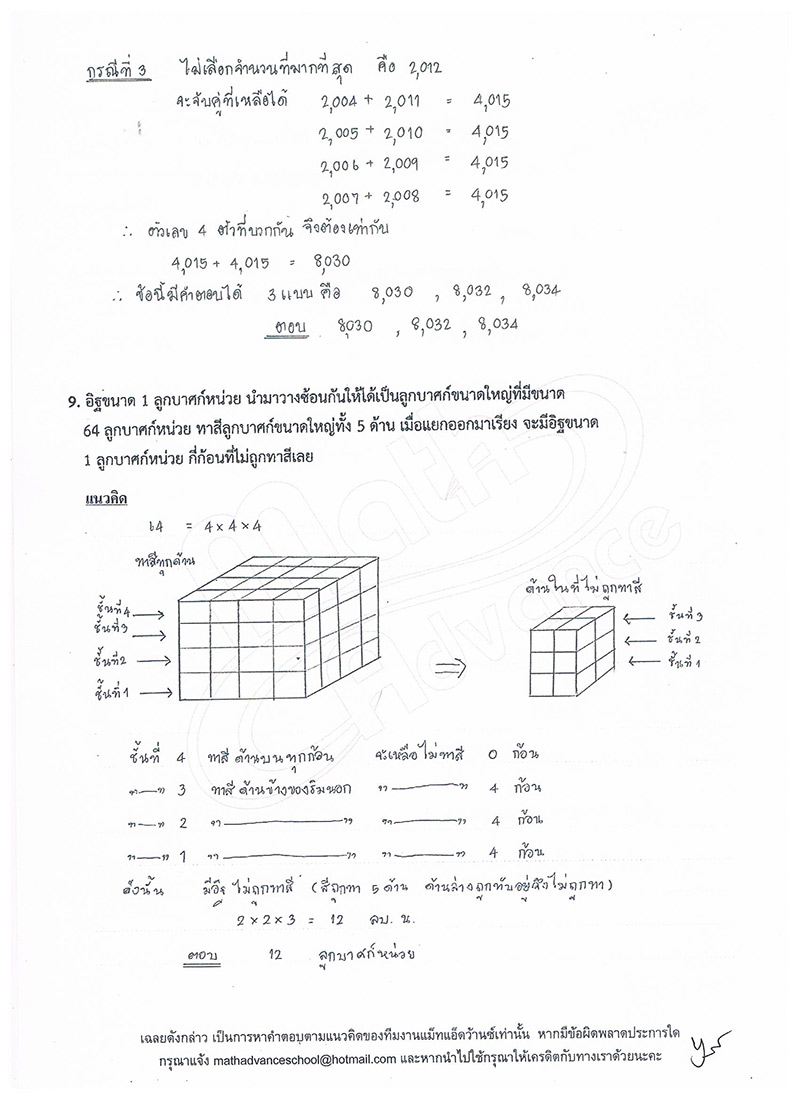 กรณีที่ 3 ไม่เลือกจำนวนที่มากที่สุด คือ 2,012
จะจับคู่ที่เหลือได้ 2,004 + 2,011 = 4,015
2,005 + 2,010 = 4,015
2,006 + 2,009 = 4,015
2,007 + 2,008 = 4,015
∴ ตัวเลข 4 ตัวที่บวกกัน จึงต้องเท่ากับ
4,015 + 4,015 = 8,030
∴ ข้อนี้มีคำตอบได้ 3 แบบ คือ 8,030 , 8,032 , 8,034
ตอบ 8,030 , 8,032 , 8,034
9. อิฐขนาด 1 ลูกบาศก์หน่วย นำมาวางซ้อนกันให้ได้เป็นลูกบาศก์ขนาดใหญ่ที่มีขนาด
64 ลูกบาศก์หน่วย ทาสีลูกบาศก์ขนาดใหญ่ทั้ง 5 ด้าน เมื่อแยกออกมาเรียง จะมีอิฐขนาด
1 ลูกบาศก์หน่วย กี่ก้อนที่ไม่ถูกทาสีเลย
แนวคิด
64 = 4 x 4 x 4
ทาสีทุกด้าน
ชั้นที่ 4
ชั้นที่ 3
ชั้นที่ 2
ชั้นที่ 1
⇒
ด้านในที่ไม่ถูกทาสี
ชั้นที่ 3
ชั้นที่ 2
ชั้นที่ 1
Math Advance
ชั้นที่ 4 ทาสีด้านบนทุกก้อน จะเหลือไม่ทาสี 0 ก้อน
"—" 3 ทาสีด้านข้างของริมนอก "—" 4 ก้อน
"—" 2 "—" "—" 4 ก้อน
"—" 1 "—" "—" 4 ก้อน
ดังนั้น มีอิฐไม่ถูกทาสี (สีถูกทา 5 ด้าน ด้านล่างถูกทับอยู่จึงไม่ถูกทา)
2 x 2 x 3 = 12 ลบ. น.
ตอบ 12 ลูกบาศก์หน่วย
เฉลยดังกล่าว เป็นการหาคำตอบตามแนวคิดของทีมงานแม็ทแอ็ดว้านซ์เท่านั้น หากมีข้อผิดพลาดประการใด
กรุณาแจ้ง mathadvanceschool@hotmail.com และหากนำไปใช้กรุณาให้เครดิตกับทางเราด้วยนะคะ